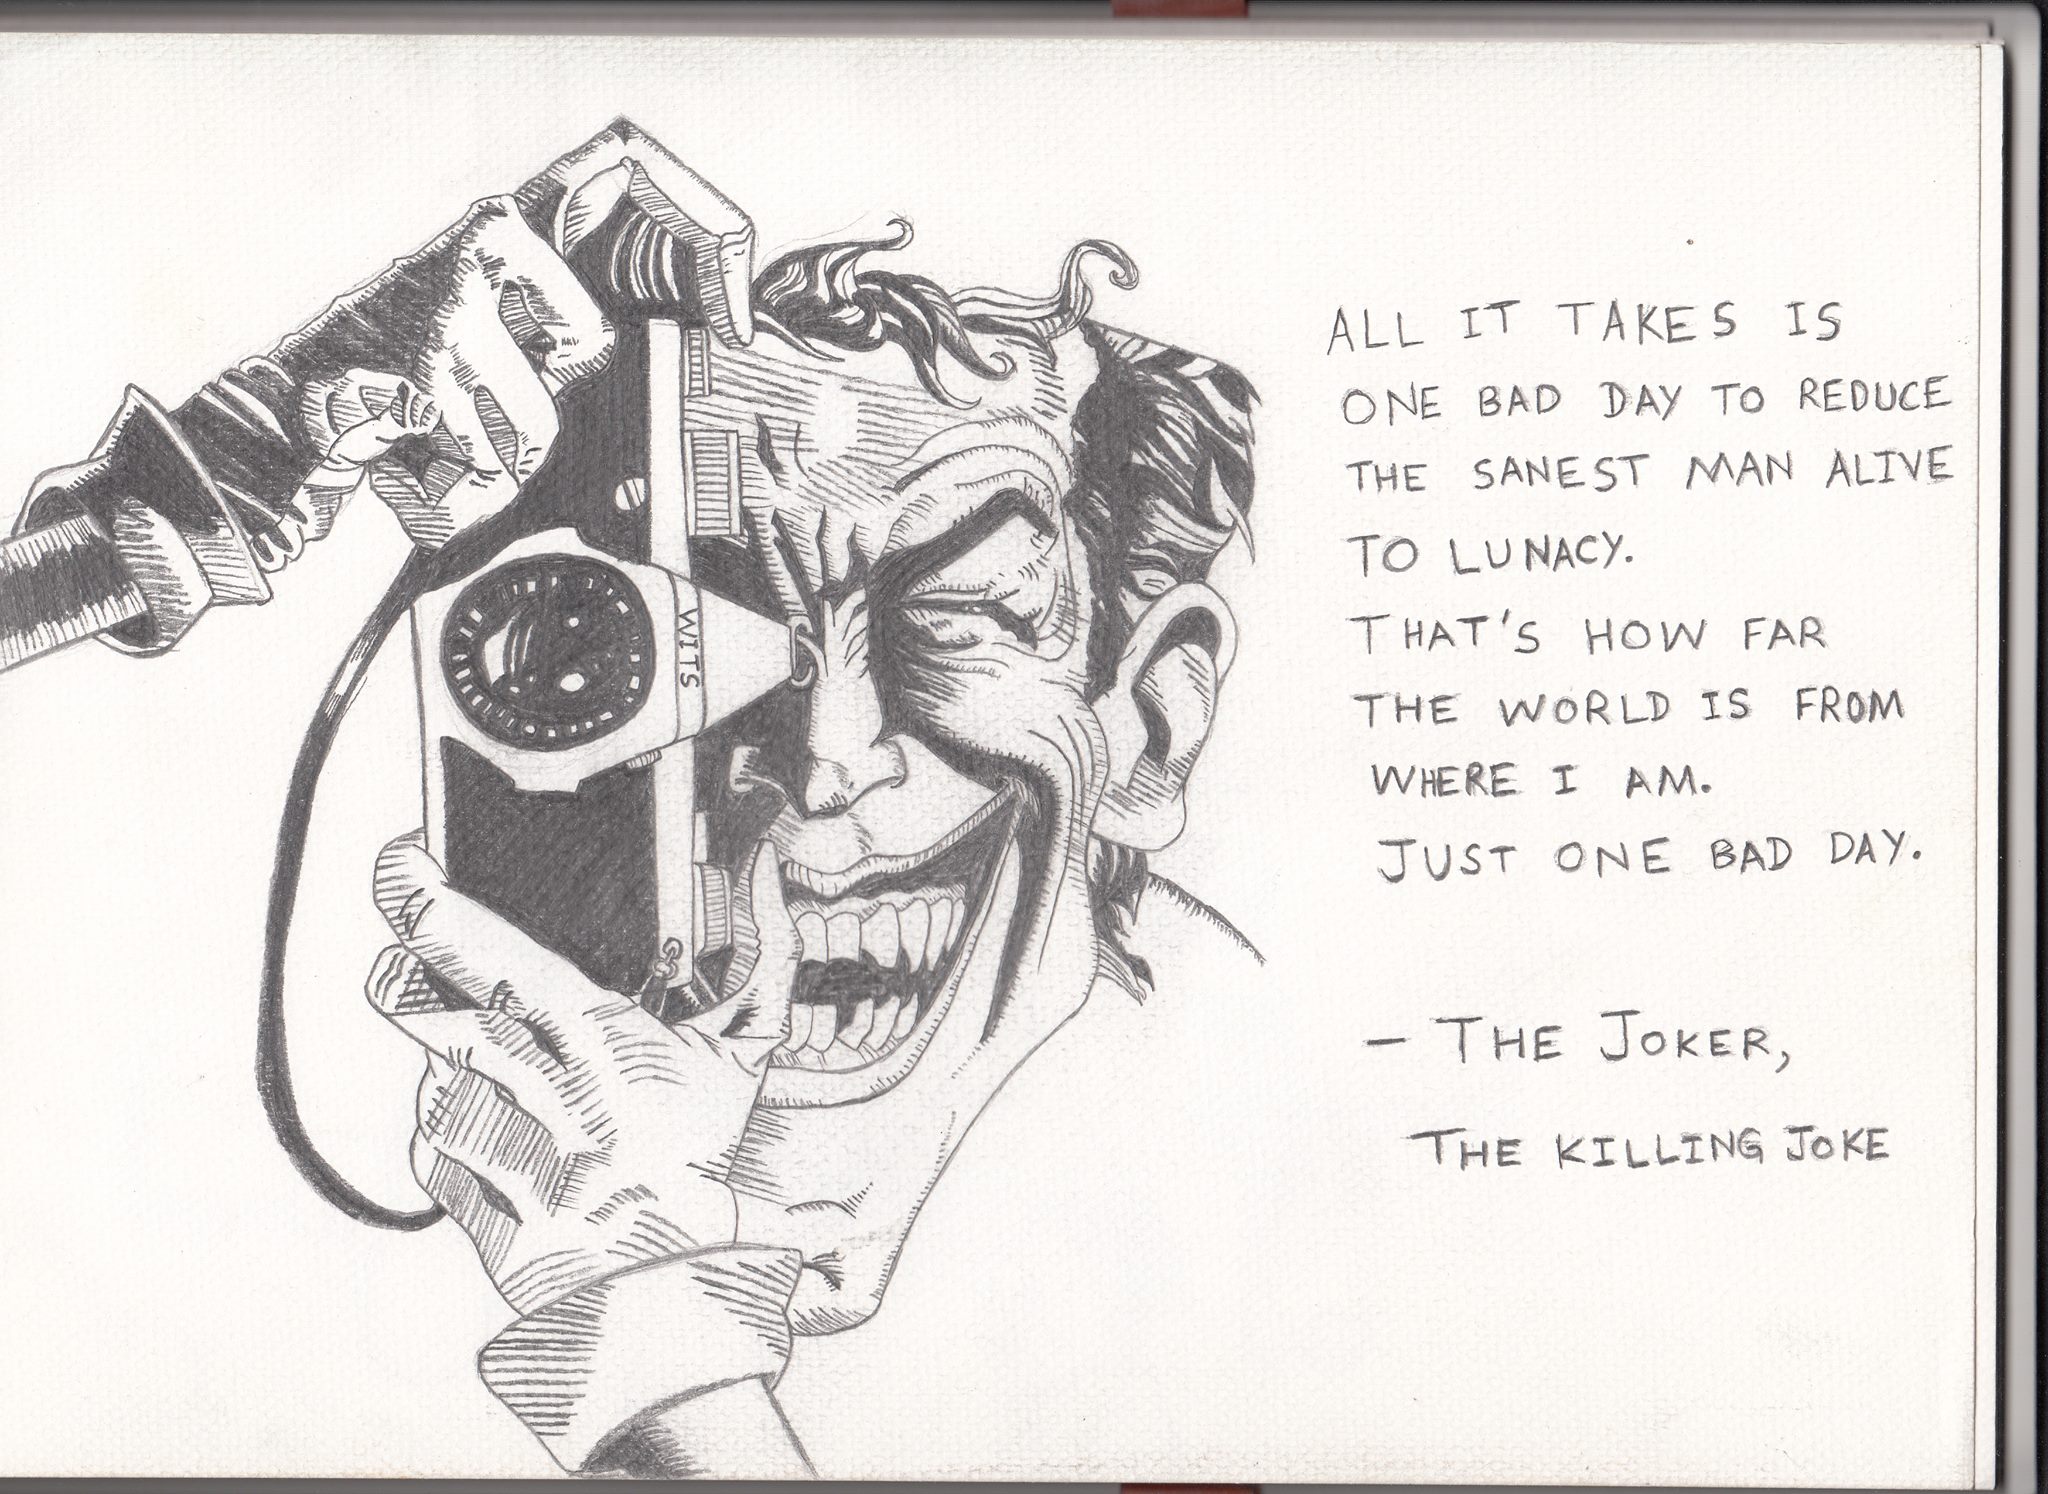 WITZ
ALL IT TAKES IS
ONE BAD DAY TO REDUCE
THE SANEST MAN ALIVE
TO LUNACY.
THAT'S HOW FAR
THE WORLD IS FROM
WHERE I AM.
JUST ONE BAD DAY.
— THE JOKER,
THE KILLING JOKE